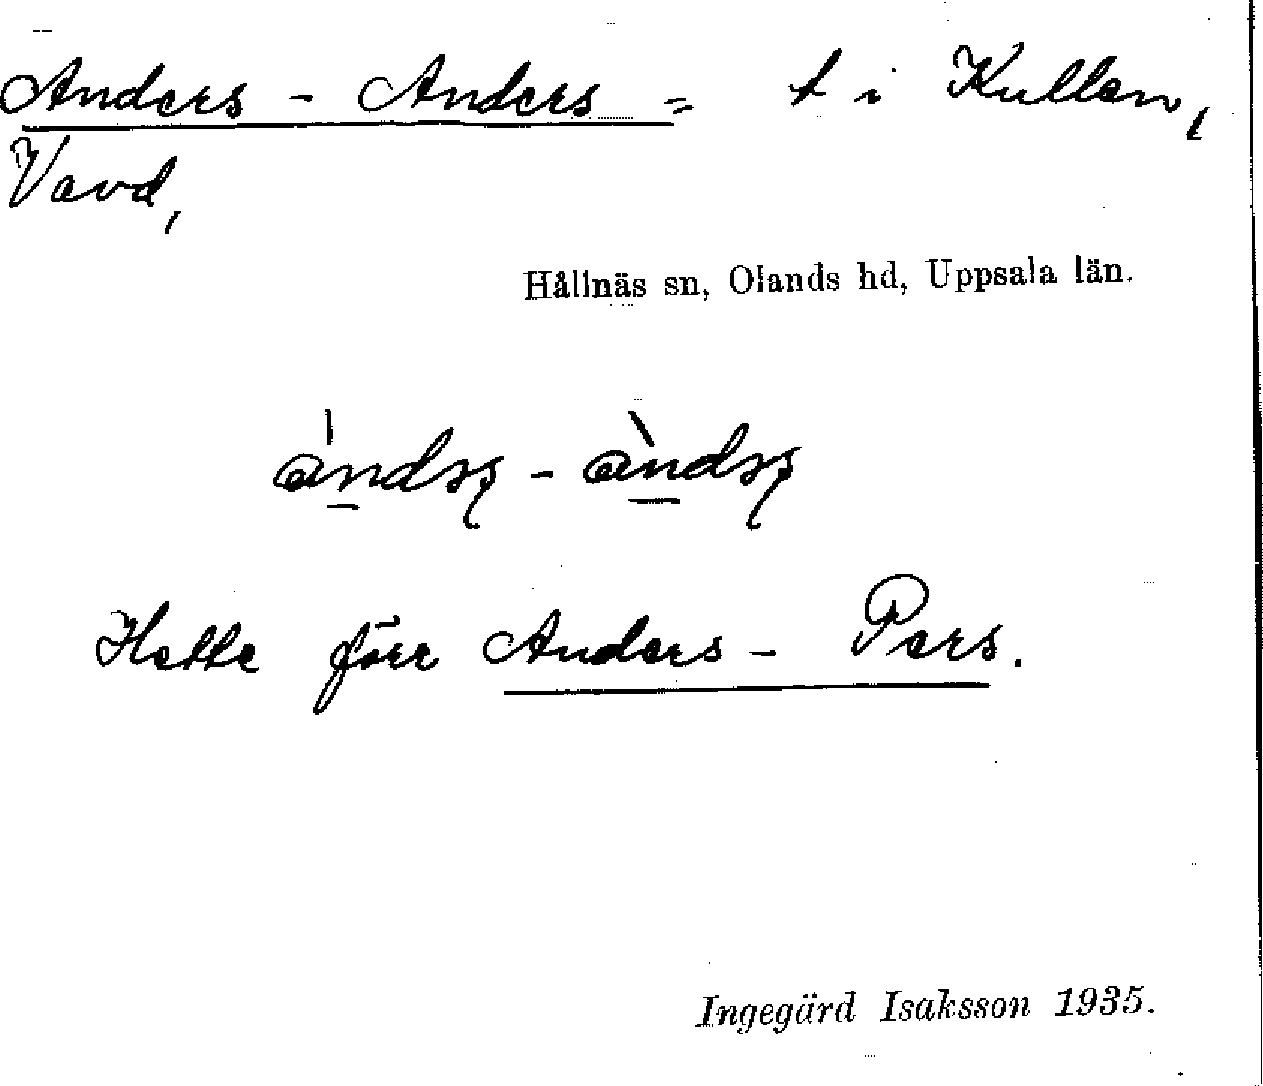 Anders - Anders = t i Kullen,
Vavd,
Hållnäs sn, Olands hd, Uppsala län.
Hette förr Anders - Pers.
Ingegärd Isaksson 1935.